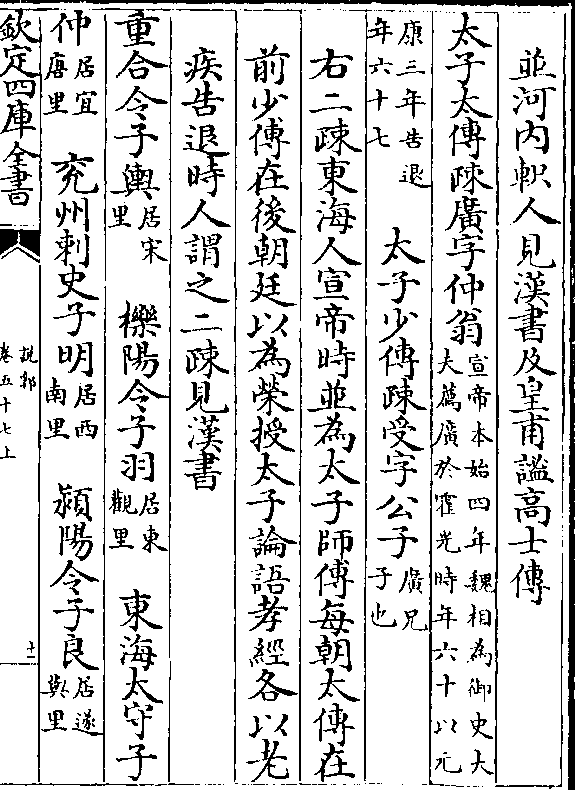 並河内軹人見漢書及皇甫謐高士傳
太子太傅疎廣字仲翁宣帝本始四年魏相為御史大
夫薦廣於霍光時年六十以元
康三年告退
年六十七
太子少傅疎受字公子廣兄
子也
右二疎東海人宣帝時並為太子師傅每朝太傅在
前少傅在後朝廷以為榮授太子論語孝經各以老
疾告退時人謂之二疎見漢書
重合令子輿居宋
里
櫟陽令子羽居東
觀里
東海太守子
仲居宜
唐里
兖州刺史子明居西
南里
潁陽令子良居遂
興里
欽定四庫全書
說郛
卷五十七上
十一